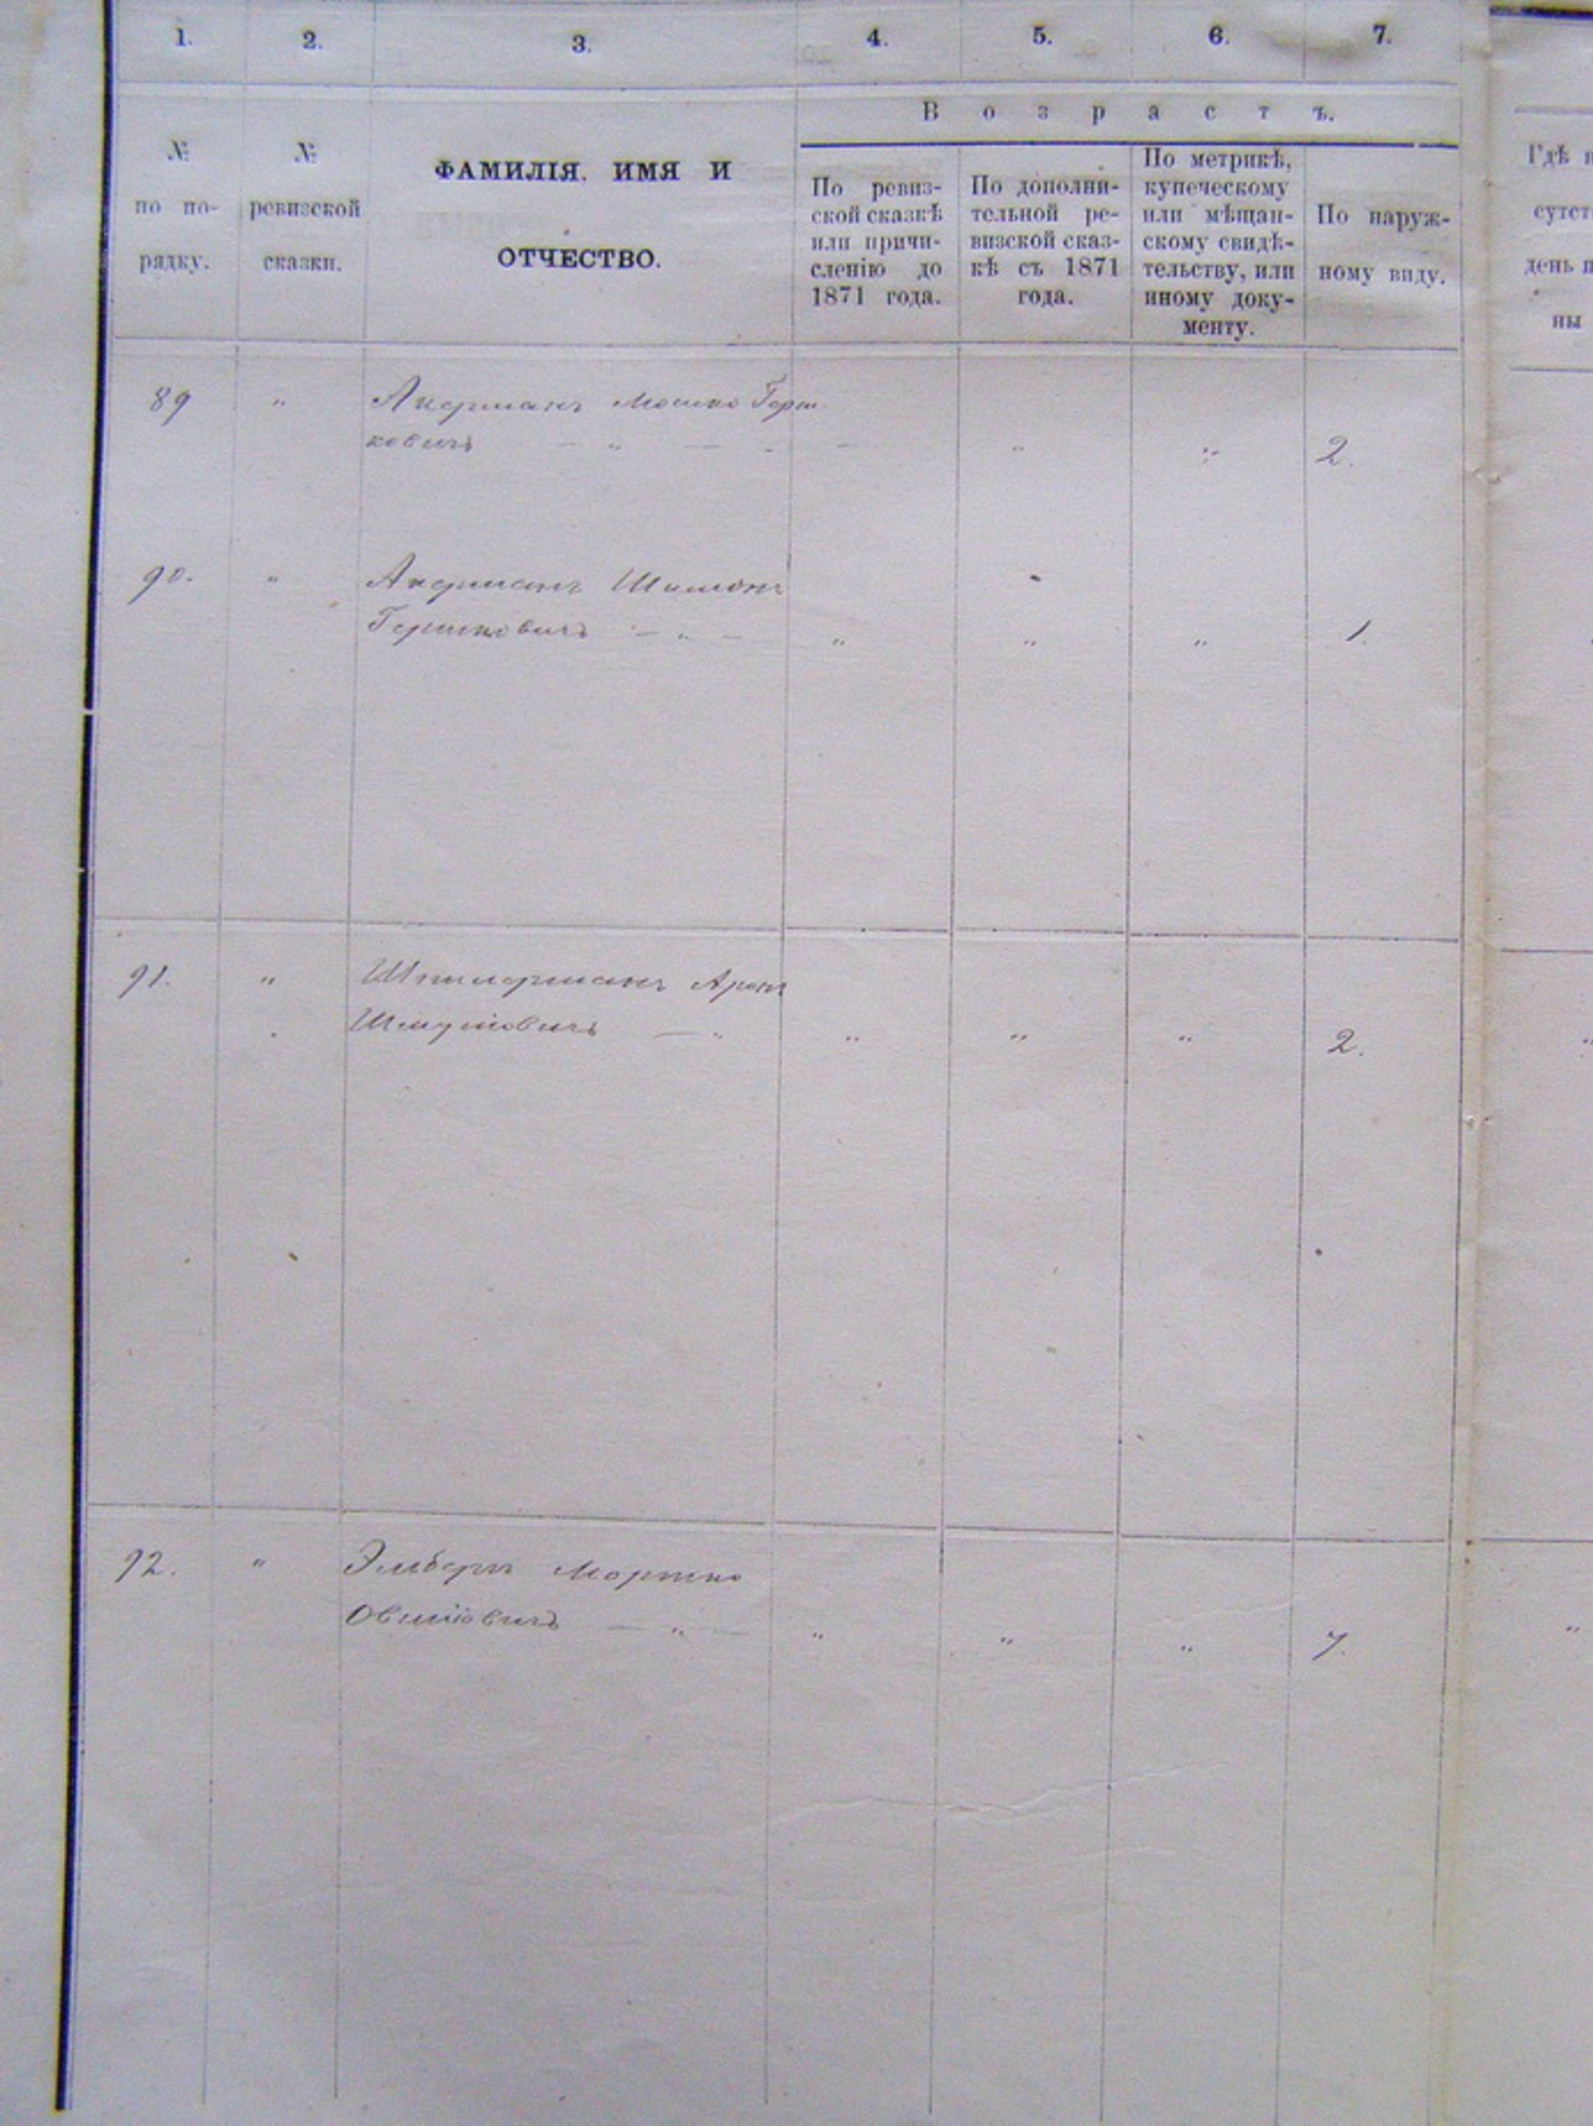 1. 2. 3. 4. 5. 6. 7.
Возрастъ.
№
по по-
рядку.
№
ревизской
сказки.
ФАМИЛІЯ, ИМЯ И
ОТЧЕСТВО.
По ревиз-
ской сказкѣ
или причи-
сленію до
1871 года.
По дополни-
тельной ре-
визской сказ-
кѣ съ 1871
года.
По метрикѣ,
купеческому
или мѣщан-
скому свидѣ-
тельству, или
иному доку-
менту.
По наруж-
ному виду.
Гдѣ
сутст
день
ны
89 " Акерманъ Мошко Герш-
ковичъ — " — - - " " 2.
90. " Акерманъ Шимонъ
Гершковичъ — " — " " " 1.
91. " Шпилерманъ Аронъ
Шмулiовичъ — " " " " 2.
92. " Мортко
Овшiiовичъ — " — " " " 7.